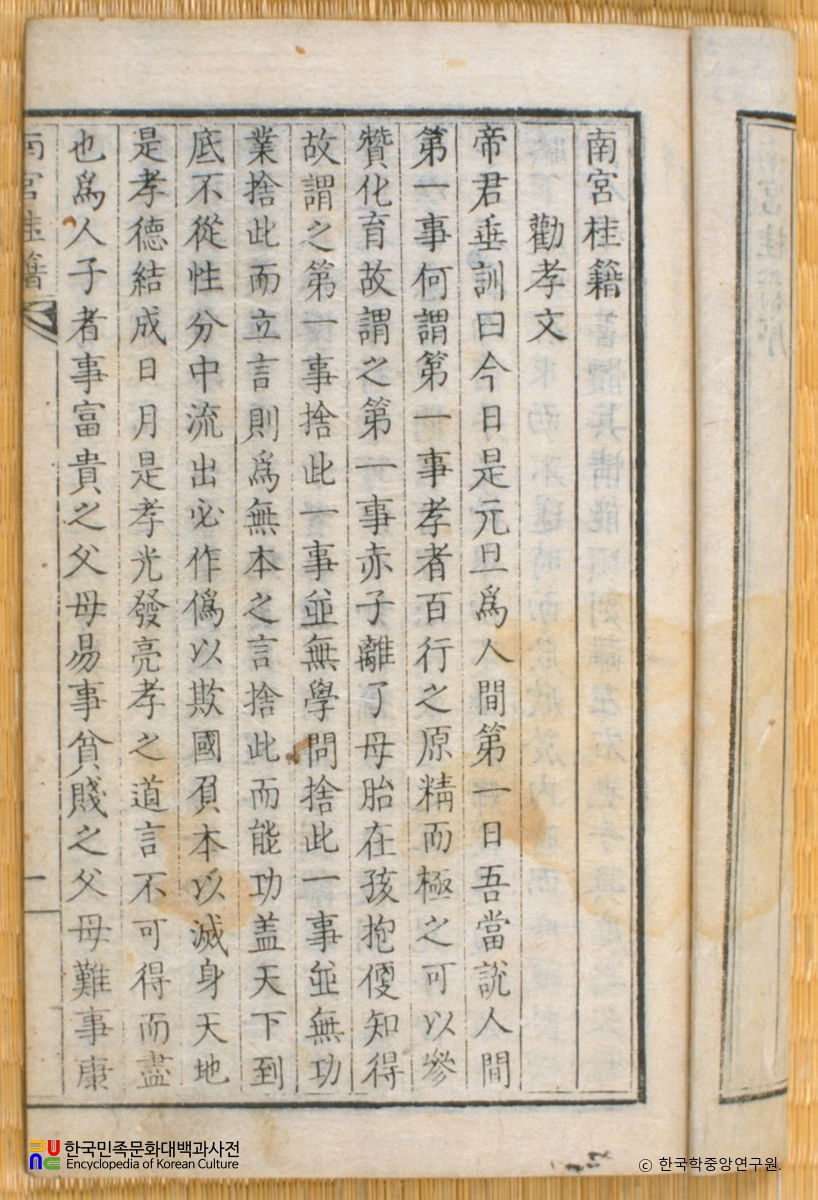 南宮桂籍
勸孝文
帝君垂訓曰今日是元旦爲人間第一日吾當說人間
第一事何謂第一事孝者百行之原精而極之可以參
贊化育故謂之第一事赤子離了母胎在孩抱便知得
故謂之第一事捨此一事並無學問捨此一事並無功
業捨此而立言則爲無本之言捨此而能功盖天下到
底不從性分中流出必作僞以欺國負本以滅身天地
是孝德結成日月是孝光發亮孝之道言不可得而盡
也爲人子者事富貴之父母易事貧賤之父母難事康
南宮桂籍
一
한국민족문화대백과사전
Encyclopedia of Korean Culture
© 한국학중앙연구원.